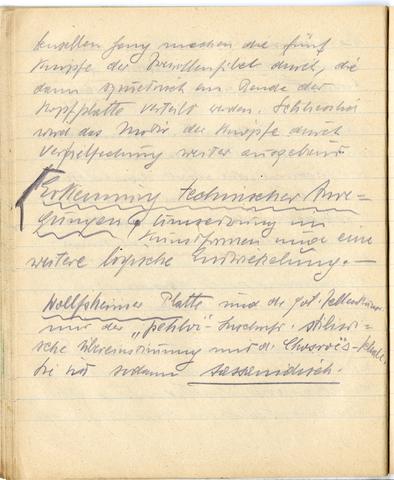 denselben Gang machen die fünf
Knöpfe der Zwiebelfibel durch, die
dann symetrisch am Rande der
Kopfplatte verteilt werden. Schliesslich
wird das Motiv der Knöpfe durch
Vervielfachung weiter ausgebaut.
Erkennung technischer Anre-
gungen, Umsetzung in
Kunstformen und eine
weitere logische Entwickelung. —
Wolfsheimer Platte und die got.
mit der "Pehlvi"-Inschrift. stilisti-
sche Übereinstimmung mit d. Chosroës-Schale.
Sie ist sodann sassanidisch.